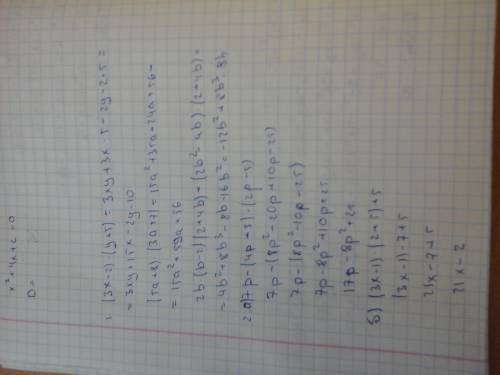 x² + 4x + 2 = 0
D =
1. (3x-2)·(y+5) = 3xy + 3x · 5 - 2y - 2·5 =
= 3xy + 15x - 2y - 10
(5a+8)·(3a+7) = 15a² + 35a + 24a + 56 =
= 15a² + 59a + 56
2b·(b-2)(2+4b) = (2b² - 4b)·(2+4b) =
= 4b² + 8b³ - 8b - 16b² = -12b² + 8b³ - 8b
2.а) 7p - (4p+5)·(2p-5)
7p - (8p² - 20p + 10p - 25)
7p - (8p² - 10p - 25)
7p - 8p² + 10p + 25
17p - 8p² + 25
б) (3x-1)·(2+5)+5
(3x-1)·7+5
21x - 7 + 5
21x - 2